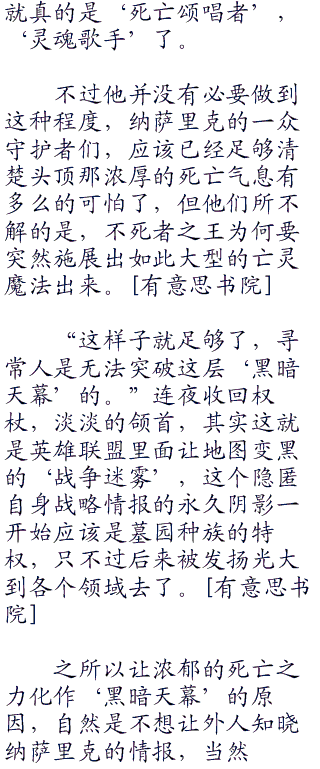 就真的是‘死亡颂唱者’，
‘灵魂歌手’了。
不过他并没有必要做到
这种程度，纳萨里克的一众
守护者们，应该已经足够清
楚头顶那浓厚的死亡气息有
多么的可怕了，但他们所不
解的是，不死者之王为何要
突然施展出如此大型的亡灵
魔法出来。[有意思书院]
“这样子就足够了，寻
常人是无法突破这层‘黑暗
天幕’的。”连夜收回权
杖，淡淡的颌首，其实这就
是英雄联盟里面让地图变黑
的‘战争迷雾’，这个隐匿
自身战略情报的永久阴影一
开始应该是墓园种族的特
权，只不过后来被发扬光大
到各个领域去了。[有意思书
院]
之所以让浓郁的死亡之
力化作‘黑暗天幕’的原
因，自然是不想让外人知晓
纳萨里克的情报，当然